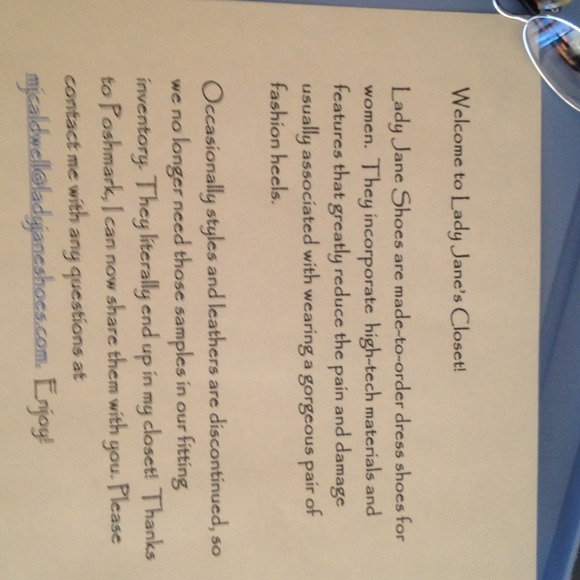 Welcome to Lady Jane's Closet!
Lady Jane Shoes are made-to-order dress shoes for
women. They incorporate high-tech materials and
features that greatly reduce the pain and damage
usually associated with wearing a gorgeous pair of
fashion heels.
Occasionally styles and leathers are discontinued, so
we no longer need those samples in our fitting
inventory. They literally end up in my closet! Thanks
to Poshmark, I can now share them with you. Please
contact me with any questions at
mjcaldwell@ladyjaneshoes.com. Enjoy!